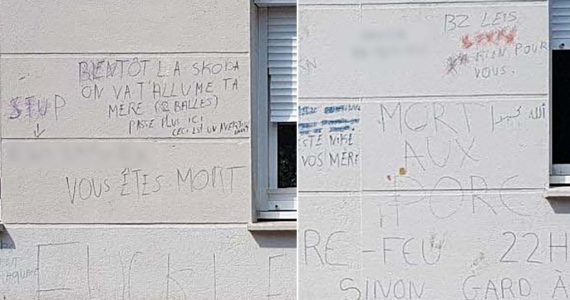 BIENTÔT LA SKODA
ON VA T'ALLUME TA
MÈRE (12 BALLES)
PASSE PLUS ICI
CECI EST UN
STUP
VOUS ÊTES MORT
FUCK
BZ LEIS
RIEN POUR
VOUS.
STE NIKE
VOS MERE
MORT
الله أكبر
AUX
PORC
RE-FEU 22H
SINON GARD À